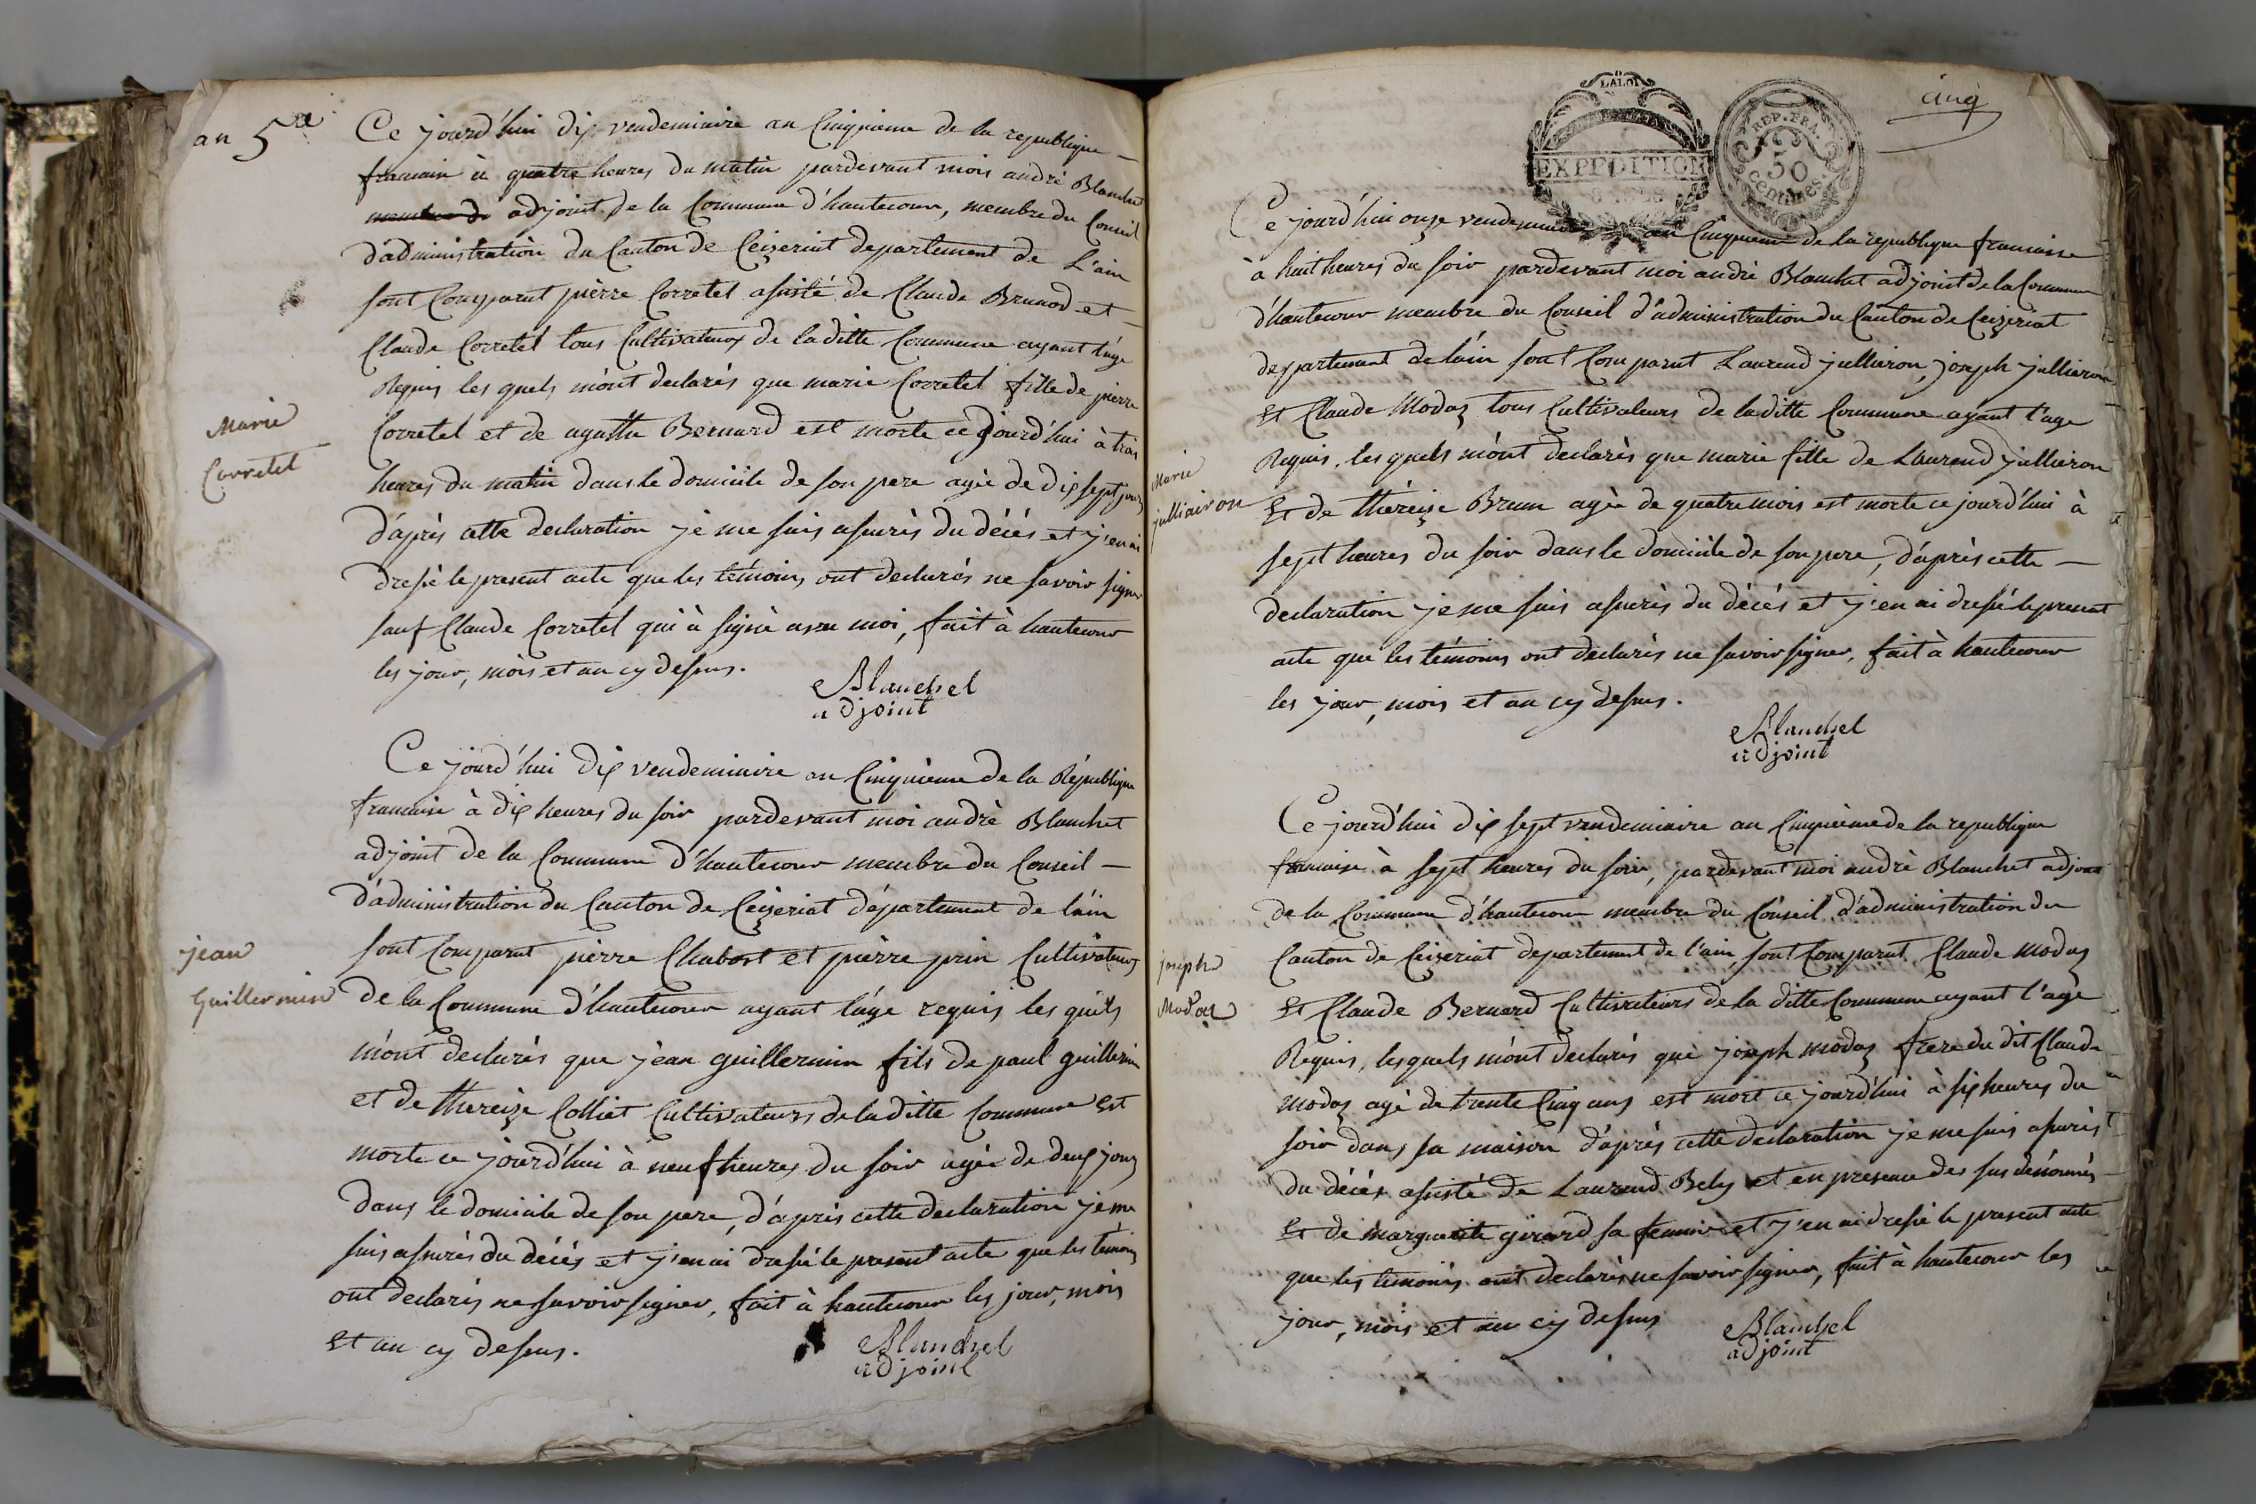 an 5e
Ce jourd'hui dix vendemiaire an Cinquieme de la republique
francaise à quatre heures du matin pardevant mois andré Blanchet
membre de adjoint de la Commune d'hautecour, membre du Conseil
d'administration du Canton de Ceizeriat departement de L'ain
sont Comparut pierre Corretel assisté de Claude Brunod et
Claude Corretel tous Cultivateurs de la ditte Commune ayant l'age
Requis les quels m'ont declarés que marie Corretel fille de pierre
Marie
Corretel
Corretel et de agathe Bernard est morte ce jourd'hui à trois
heures du matin dans le domicile de son pere agée de dix sept jours
d'après cette declaration je me suis assurés du décés et j'en ai
dressé le present acte que les témoins ont declarés ne savoir signer
sauf Claude Corretel qui à signé avec moi, fait à hautecour
les jour, mois et an cy dessus.
Blanchet
adjoint
Ce jourd'hui dix vendemiaire an Cinquieme de la République
francaise à dix heures du soir pardevant moi andrè Blanchet
adjoint de la Commune d'hautecour membre du Conseil
d'administration du Canton de Ceizeriat département de l'ain
jean
Guillermin
sont Comparut pierre Chabost et pierre prin Cultivateurs
de la Commune d'hautecour ayant l'age requis les quels
m'ont declarés que jean guillermin fils de paul guillermin
et de thereize Colliet Cultivateurs de la ditte Commune est
morte ce jourd'hui à neuf heures du soir agée de deux jours
dans le domicile de son pere, d'après cette declaration je me
suis assurés du décés et j'en ai dressé le present acte que les témoins
ont declarés ne savoir signer, fait à hautecour les jour, mois
et an cy dessus.
Blanchet
adjoint
LA LOI
EXPEDITION
REP. FRA.
50
centimes
cinq
Ce jourd'hui onze vendemiaire an Cinquieme de la republique francaise
à huit heures du soir pardevant moi andrè Blanchet adjoint de la Commune
d'hautecour membre du Conseil d'administration du Canton de Ceizeriat
departement de l'ain sont Comparut Laurend jullieron, joseph jullieron
et Claude Modaz tous Cultivateurs de la ditte Commune ayant l'age
Marie
julliairon
Requis, les quels m'ont declarés que marie fille de Laurend jullieron
et de théreize Brun agée de quatre mois est morte ce jourd'hui à
sept heures du soir dans le domicile de son pere, d'après cette
declaration je me suis assurés du décés et j'en ai dressé le present
acte que les témoins ont declarés ne savoir signer, fait à hautecour
les jour, mois et an cy dessus.
Blanchet
adjoint
Ce jourd'hui dix sept vendemiaire an Cinquieme de la republique
francaise à sept heures du soir, pardevant moi andrè Blanchet adjoint
de la Commune d'hautecour membre du Conseil d'administration du
joseph
Modaz
Canton de Ceizeriat departement de l'ain, sont Comparut Claude modaz
et Claude Bernard Cultivateurs de la ditte Commune ayant l'age
Requis, lesquels m'ont declarés que joseph modaz frere du dit Claude
modaz agé de trente Cinq ans est mort ce jourd'hui à six heures du
soir dans sa maison d'après cette declaration je me suis assurés
du décés assisté de Laurend Bely et en presence des sus dénomés
et de marguerite girard sa femme et j'en ai dressé le present acte
que les temoins ont declarés ne savoir signer, fait à hautecour les
jour, mois et an cy dessus
Blanchet
adjoint